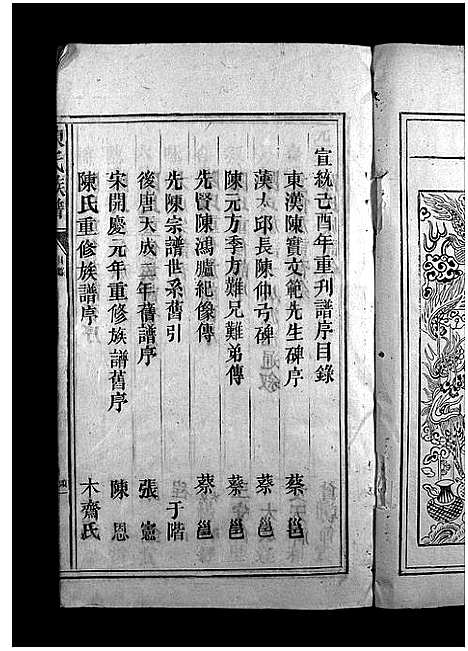 宣統己酉年重刊譜序目錄
東漢陳寔文範先生碑序 蔡邕
漢太邱長陳仲弓碑 蔡邕
陳元方季方難兄難弟傳 蔡邕
先賢陳鴻臚紀像傳 蔡邕
先陳宗譜世系舊引 于階
後唐天成三年舊譜序 張憲
宋開慶元年重修族譜舊序 陳恩
陳氏重修族譜序 木齋氏
陳氏族譜